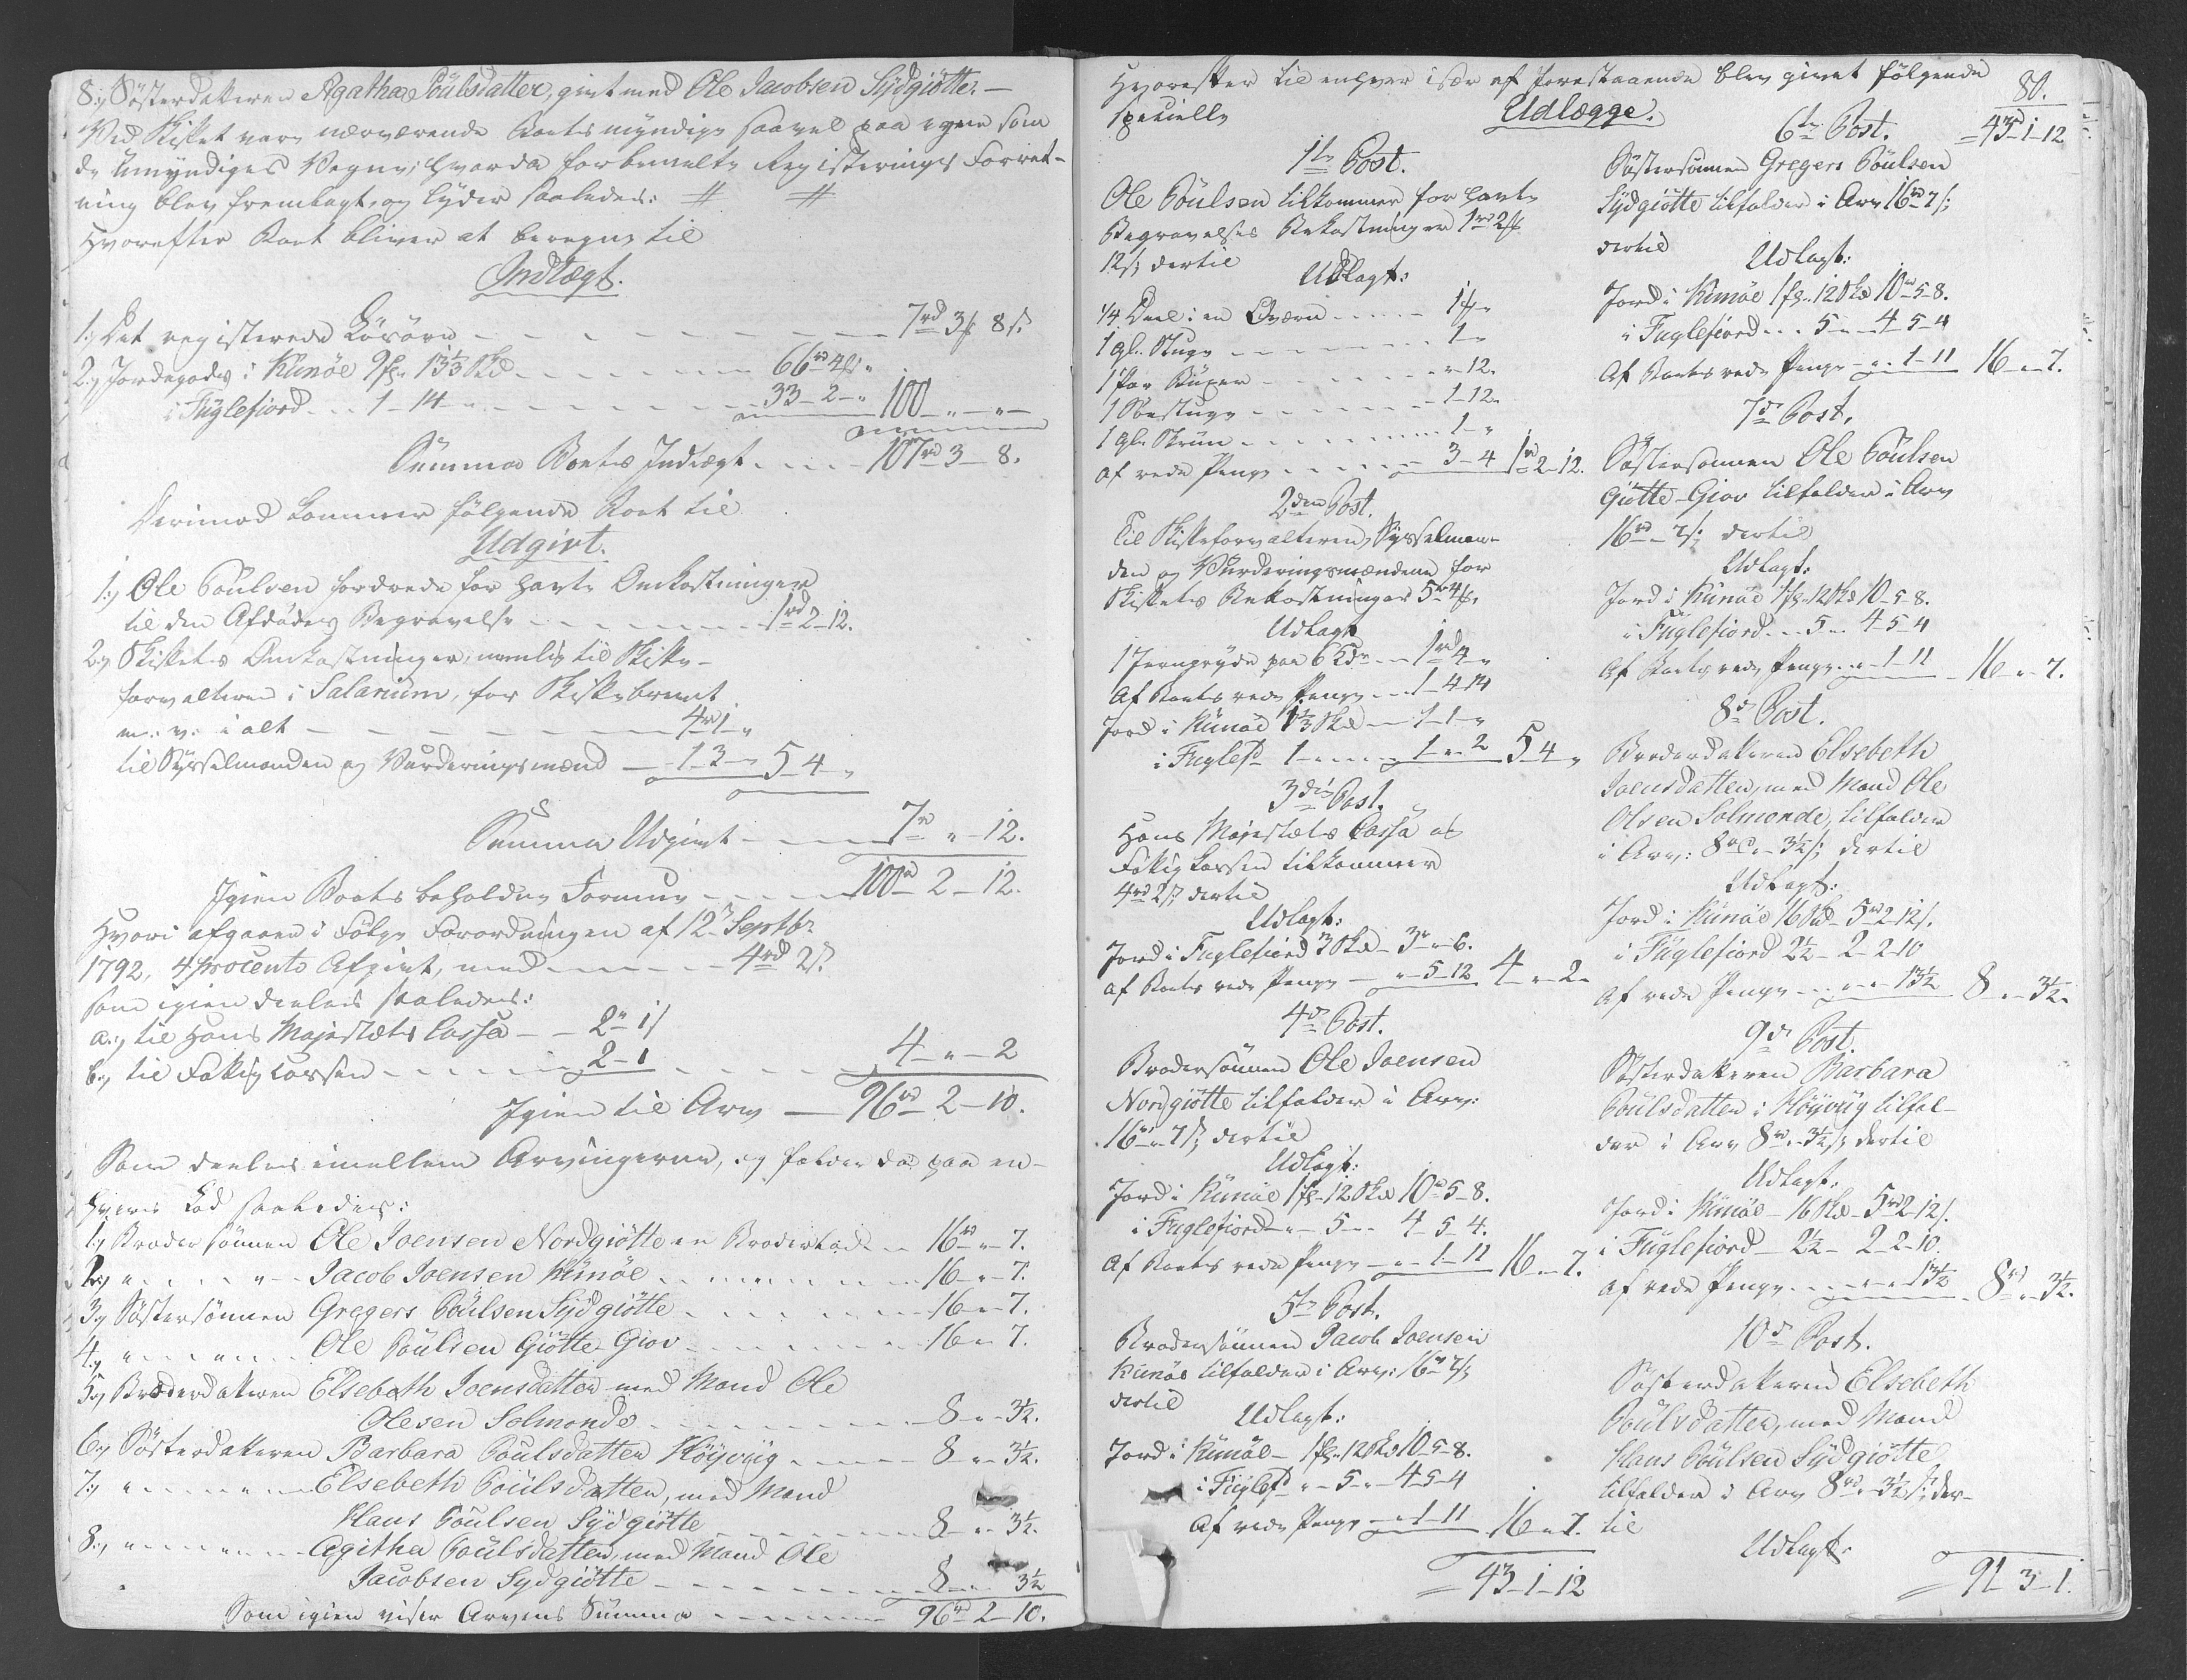 8.) Søsterdatteren Agatha Poulsdatter, givt med Ole Jacobsen Sydgiötte. —
Ved Skiftet vare nærværende Boets myndige saavel paa egne som
de Umyndiges Vegne; hvorda forbemelte Registerings Forret-
ning blev fremlagt, og lyder saaledes: # #
Hvorefter Boet bliver at beregne til
Indtægt.
1.) Det registerede Lösöre — — — — 7rd 3 ß 8 s.
2.) Jordegods i Kunöe 9 f. 13⅓ Skd — — — 66rd 4 „
i Fuglefiord . . 1 — 14 — — — 33 — 2 — „ 100 — „ — „ —
Summa Boets Indtægt . . . . 107rd 3 — 8.
Derimod kommer følgende Boet til
Udgivt.
1.) Ole Poulsen fordrede for havte Omkostninger
til den Afdødes Begravelse — — — — 1rd 2 — 12.
2.) Skiftets Omkostninger, nemlig til Skifte-
forvalteren i Salarium, for Skiftebrevet
m: v: i alt — — — — — 4rd 1 — „
til Sysselmanden og Vurderingsmænd — 1 — 3 — „ 5 — 4 — „
Summa Udgivt — — — 7rd „ — 12.
Igien Boets beholdne Formue — — — 100rd 2 — 12.
Hvori afgaaer i Følge Forordningen af 12te Septbr
1792, 4 procento Afgivt, med — — — 4rd 2 s.
som igien deeles saaledes:
a.) til Hans Majestæts Cassa — — 2rd 1 s
b.) til Fattig Cassen — — — 2 — 1 4 — „ — 2
Igien til Arv — 96rd — 2 — 10.
Som deeles imellem Arvingerne, og falder da paa en-
hvers Lod saaledes:
1.) Broder sønnen Ole Joensen Nordgiötte en Broderlod — 16rd „ — 7.
2.) „ — — „ — Jacob Joensen Kunöe — — — 16 — „ — 7.
3.) Søstersønnen Gregers Poulsen Sydgiötte — — — 16 — „ — 7.
4.) „ — — „ — Ole Poulsen Giötte Giov — — — 16 — „ — 7.
5.) Broderdatteren Elsebeth Joensdatter med Mand Ole
Olesen Solmonde — — — — 8 — „ — 3½.
6.) Søsterdatteren Barbara Poulsdatter Höyvüg — — — 8 — „ — 3½.
7.) „ — — „ — Elsebeth Poulsdatter, med Mand
Hans Poulsen Sydgiötte — — — 8 — „ — 3½.
8.) „ — — „ — Agitha Poulsdatter, med Mand Ole
Jacobsen Sydgiötte — — — 8 — „ — 3½
Som igien viser Arvens Summa — — — 96rd 2 — 10.
Hvorefter til enhver især af forestaaende blev givet følgende
specielle
Udlægge.
80.
1te Post.
Ole Poulsen tilkommer for havte
Begravelses Bekostninger 1rd 2 ß
12 s; dertil
Udlagt:
¼ Deel i en Qværn — — — 1 ß „
1 gl. — — — 1 „
1 par Buxer — — — „ — 12.
1 — — — 1 — 12.
1 gl. Skrin — — — 1 — „
af rede Penge — — — 3 — 4 1rd 2 — 12.
2den Post.
Til Skifteforvalteren, Sysselman-
den og Vurderingsmændene for
Skiftets Bekostninger 5rd 4 ß.
Udlagt
1 Jerngryde paa 6 — — 1rd 4 „
Af Boets rede Penge — — 1 — 4 — 14
Jord i Kunöe 1⅓ Skd — 1 — 1 — „
i Fuglefd 1 — — — 1 — „ — 2 5 — 4 — „
3die Post.
Hans Majestæts Cassa og
Fattig Cassen tilkommer
4rd 2 s; dertil
Udlagt:
Jord i Fuglefiord 3 Skd — 3rd „ — 6.
af Boets rede Penge — „ — 5 — 12 4 — „ — 2 —
4de Post.
Brodersønnen Ole Joensen
Nordgiötte tilfalder i Arv:
16rd „ 7 s; dertil
Udlagt:
Jord i Kunöe 1 f. 12 Skd 10rd 5 — 8.
i Fuglefiord — „ — 5 — „ 4 — 5 — 4.
Af Boets rede Penge — „ — 1 — 11 16 — „ — 7.
5te Post.
Brodersønnen Jacob Joensen
Kunöe tilfalder i Arv: 16rd 7 s;
dertil
Udlagt:
Jord i Kunöe — 1 f. 12 Skd 10 — 5 — 8.
i Fuglefd „ — 5 — „ — 4 — 5 — 4
Af rede Penge — „ — 1 — 11 16 — „ — 7.
43 — 1 — 12
6te Post. 43 — 1 — 12
Søstersønnen Gregers Poulsen
Sydgiötte tilfalder i Arv 16rd 7 s;
dertil
Udlagt:
Jord i Kunöe 1 f. 12 Skd 10rd 5 — 8.
i Fuglefiord . . 5 — „ 4 — 5 — 4
Af Boets rede Penge — „ — 1 — 11 16 — „ — 7.
7de Post.
Søstersønnen Ole Poulsen
Giötte-Giov tilfalder i Arv
16rd „ 7 s; dertil
Udlagt:
Jord i Kunöe 1 f. 12 Skd 10 — 5 — 8.
i Fuglefiord . . 5 — „ 4 — 5 — 4
Af Boets rede Penge — „ — 1 — 11 16 — „ — 7.
8de Post.
Broderdatteren Elsebeth
Joensdatter, med Mand Ole
Olsen Solmonde, tilfalder
i Arv: 8rd „ — 3½ s; dertil
Udlagt:
Jord i Kunöe 16 Skd 5rd 2 — 12 s.
i Fuglefiord 2½ — 2 — 2 — 10
Af rede Penge — — „ — „ — 13½ 8 — „ — 3½.
9de Post.
Søsterdatteren Barbara
Poulsdatter i Höyvüg tilfal-
der i Arv 8rd „ — 3½ s; dertil
Udlagt:
Jord i Kunöe — 16 Skd — 5rd 2 — 12 s.
i Fuglefiord — 2½ — 2 — 2 — 10
af rede Penge — — „ — „ — 13½ 8rd „ — 3½.
10de Post.
Søsterdatteren Elsebeth
Poulsdatter, med Mand
Hans Poulsen Sydgiötte
tilfalder i Arv 8rd „ — 3½ s; der-
til
Udlagt.
91 — 3 — 1.